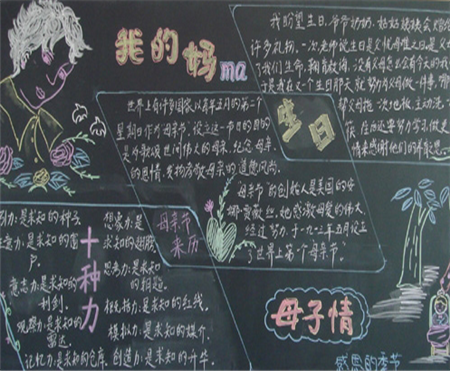 我的妈 ma
我盼望生日,爷爷奶奶、姑姑姨姨会
许多礼物。一次老师说生日是父忧母难之日是父
了我们生命,
个生日那天就努力为父母做一件事,
帮父母拖一次地板,主动洗一
情来感谢他们的
生日
世界上有许多国家以每年五月的第一个
星期日作为母亲节。设立这一节日的目的
是为歌颂世间伟大的母亲,纪念母亲
的恩情,发扬孝敬母亲的道德风尚。
母亲节的创始人是美国的安
娜·贾薇丝,她感激母爱的伟大,
经过努力,于一九一三年五月设立
了世界上第一个母亲节。
母亲节
来历
十种力
努力:是求知的种子
注意力:是求知的窗
户。
意志力:是求知的
利剑。
观察力:是求知的
雷达。
记忆力:是求知的仓库。
想象力:是
求知的翅膀
是求知
的相题。
是求知的红线。
模拟力:是求知的媒介。
创造力:是求知的升华。
母子情
感恩的季节